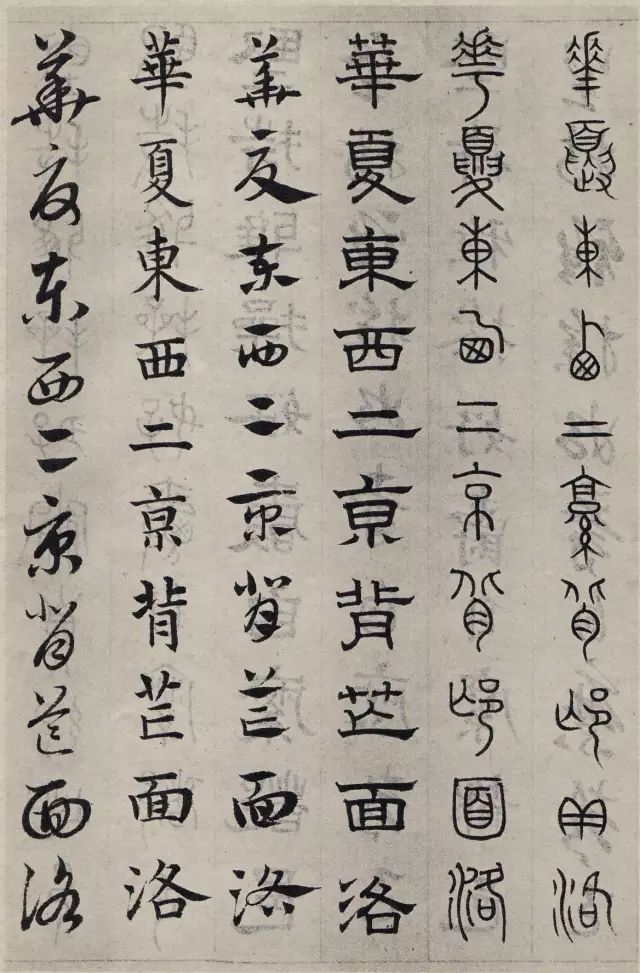 華夏東西二京背邙面洛
華夏東西二京背邙面洛
華夏東西二京背芒面洛
華夏東西二京背芒面洛
華夏東西二京背芒面洛
華夏東西二京背芒面洛